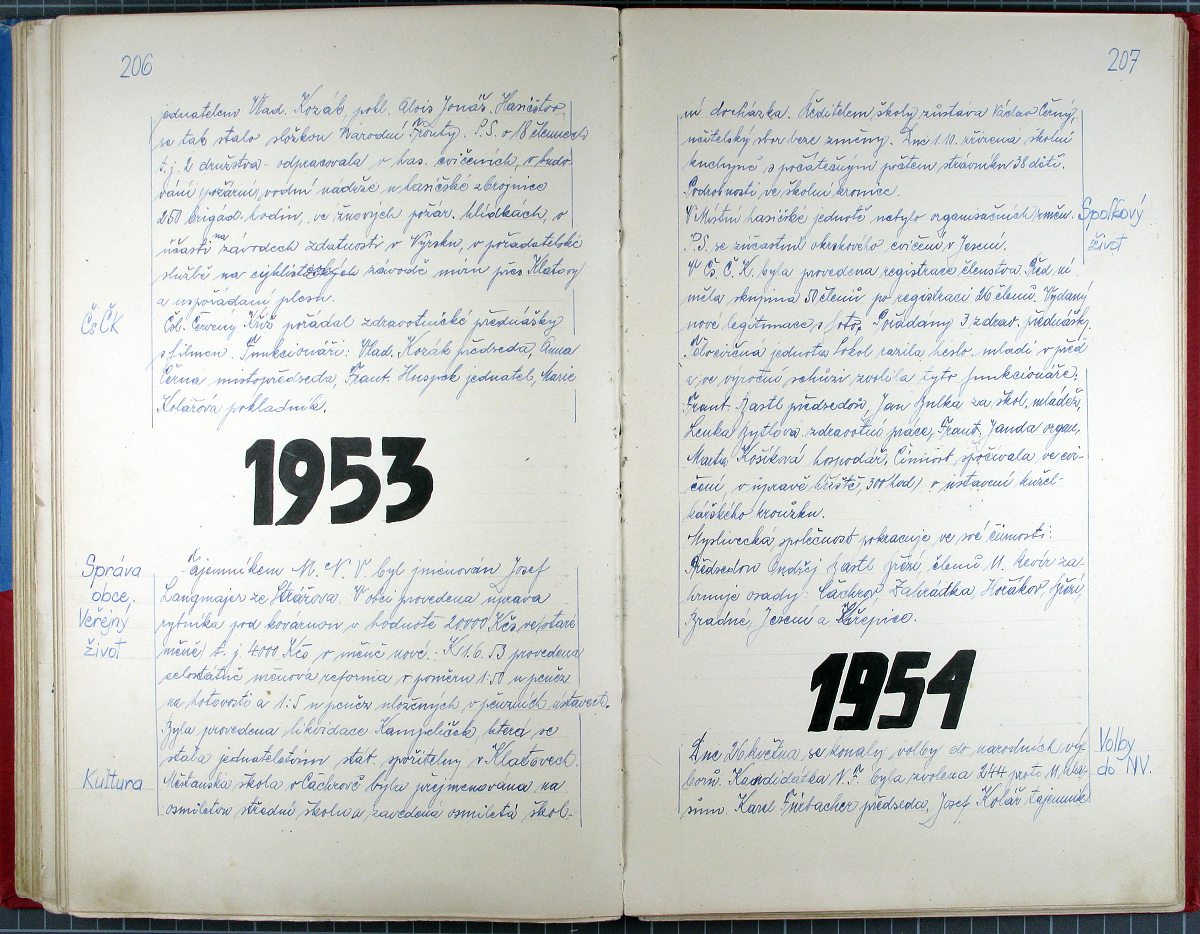 206
jednatelem Vlad. Kozák pokl. Alois Jonáš. Hasičstvo
se tak stalo složkou Národní Fronty. P.S. o 18 členech
t.j. 2 družstva - odpracovala v has. cvičeních, v budo-
vání požární vodní nádrže u hasičské zbrojnice
250 brigád. hodin, ve žňových požár. hlídkách, v
účasti na závodech zdatnosti v Nýrsku, v pořadatelské
službě na cyklistických závodě mím přes Klatovy
a uspořádání plesu.
ČsČK
Čsl. Červený Kříž pořádal zdravotnické přednášky
s filmem. Funkcionáři: Vlad. Kozák předseda, Anna
Černá místopředseda, Frant. Huspek jednatel, Marie
Kolářová pokladník.
1953
Správa
obce.
Veřejný
život
Tajemníkem M.N.V. byl jmenován Josef
Langmajer ze Strážova. V obci provedena úprava
rybníka pod kovárnou v hodnotě 20000 Kčs ve staré
měně t.j. 4000 Kčs v měně nové. K 1.6.53 provedena
celostátně měnová reforma v poměru 1:50 u peněz
na hotovosti a 1:5 u peněz uložených v peněžních ústavech.
Byla provedena likvidace Kampeliček, která se
stala jednatelstvím stát. spořitelny v Klatovech.
Kultura
Měšťanská škola v Čachrově byla přejmenována na
osmiletou střední školu a zavedena osmiletá škol-
207
ní docházka. Ředitelem školy zůstává Václav Černý,
učitelský sbor beze změny. Dne 1.10. zřízena školní
kuchyně s počátečným počtem strávníků 38 dětí.
Podrobnosti ve školní kronice.
Spolkový
život
V Místní hasičské jednotě nebylo organisačních změn.
P.S. se zúčastnil okrskového cvičení v Jesení.
V Čs. Č. K. byla provedena registrace členstva. Před ní
měla skupina 50 členů po registraci 26 členů. Vydány
nové legitimace s foto. Pořádány 3 zdrav. přednášky.
Tělocvičná jednota Sokol razila heslo - mladí v před
a ve výroční schůzi zvolila tyto funkcionáře:
Frant. Bastl předsedou, Jan Bulka za škol. mládež,
Lenka Bytlová zdravotní práce, Frant. Janda organ,
Marta Košíková hospodář. Činnost spočívala ve cvi-
čení, v úpravě hřiště, 300 hod, v ustavení kužel-
kářského kroužku.
Myslivecká společnost pokračuje ve své činnosti:
Předsedou Ondřej Bastl Březí, členů 11. Revír za-
hrnuje osady: Čachrov, Zahrádka, Horákov, Březí,
Bradné, Jesení a Křepice.
1954
Volby
do NV.
Dne 26 května se konaly volby do národních vý-
borů. Kandidátka N.F. byla zvolena 244 proti 11 hla-
sům. Karel Fribacher předseda, Josef Kolář tajemník